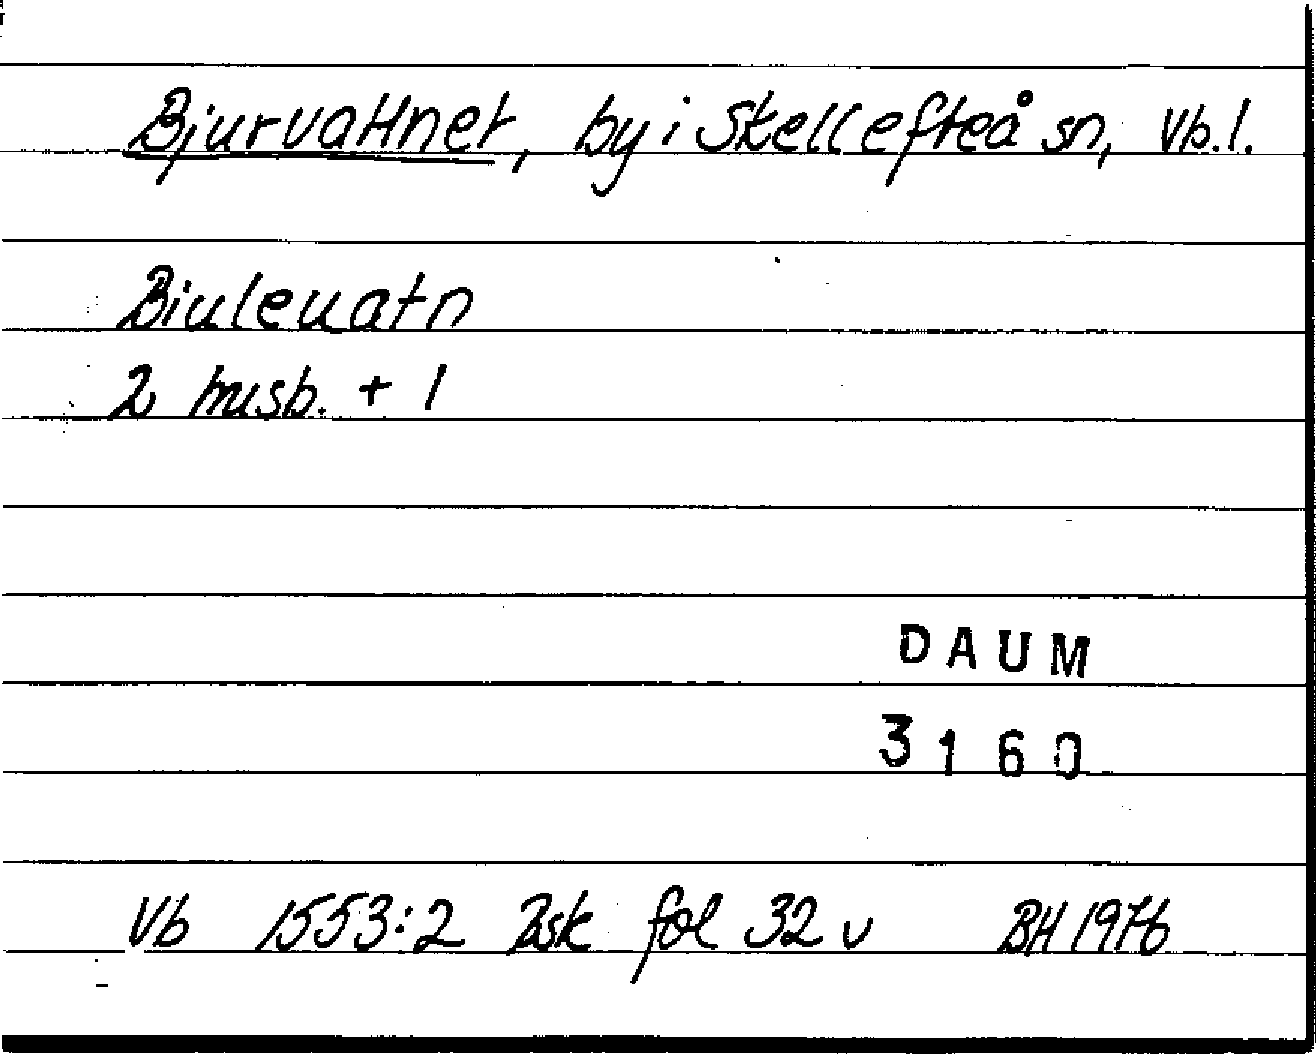 Bjurvattnet, by i Skellefteå sn, Vb.l.
Biuleuatn
2 husb. + 1
DAUM
3160
Vb 1553:2 Bsk fol 32 v BH 1976